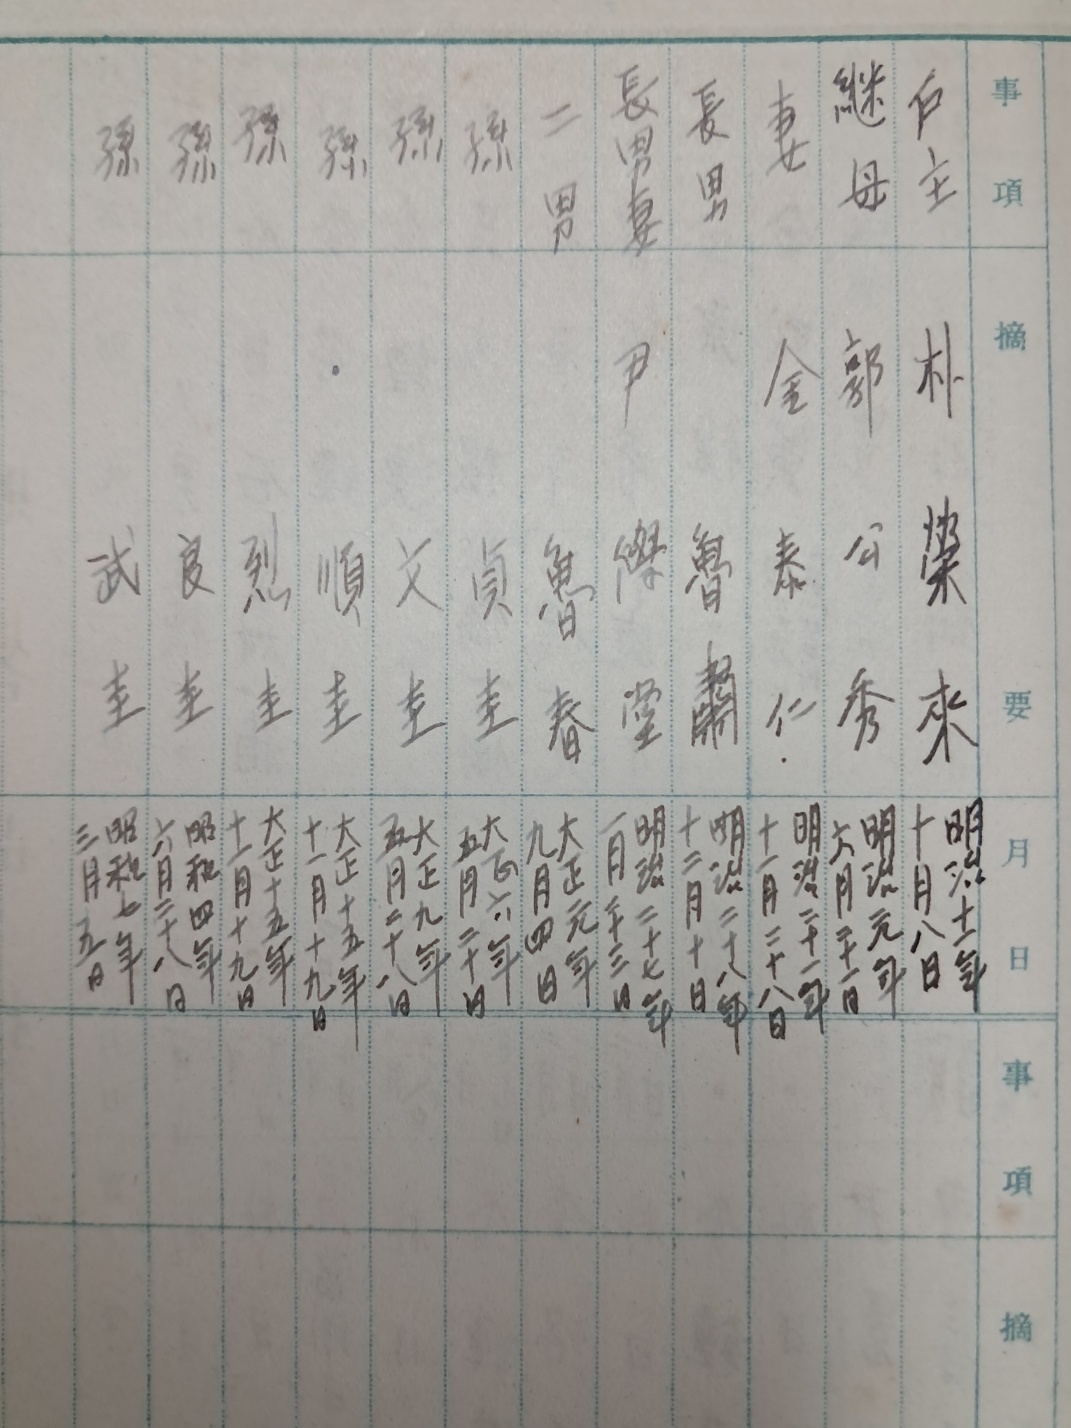 事項
摘要
月日
戶主 朴 榮來 明治十一年十月八日
継母 郭 公秀 明治元年六月二十一日
妻 金 泰仁 明治二十一年十一月二十八日
長男 魯 明治二十八年十二月十日
長男妻 尹 堂 明治二十七年一月二十三日
二男 魯春 大正元年九月四日
孫 貞圭 大正六年五月二十日
孫 文圭 大正九年五月二十八日
孫 順圭 大正十五年十一月十九日
孫 烈圭 大正十五年十一月十九日
孫 良圭 昭和四年六月二十八日
孫 武圭 昭和七年三月五日
事項
摘